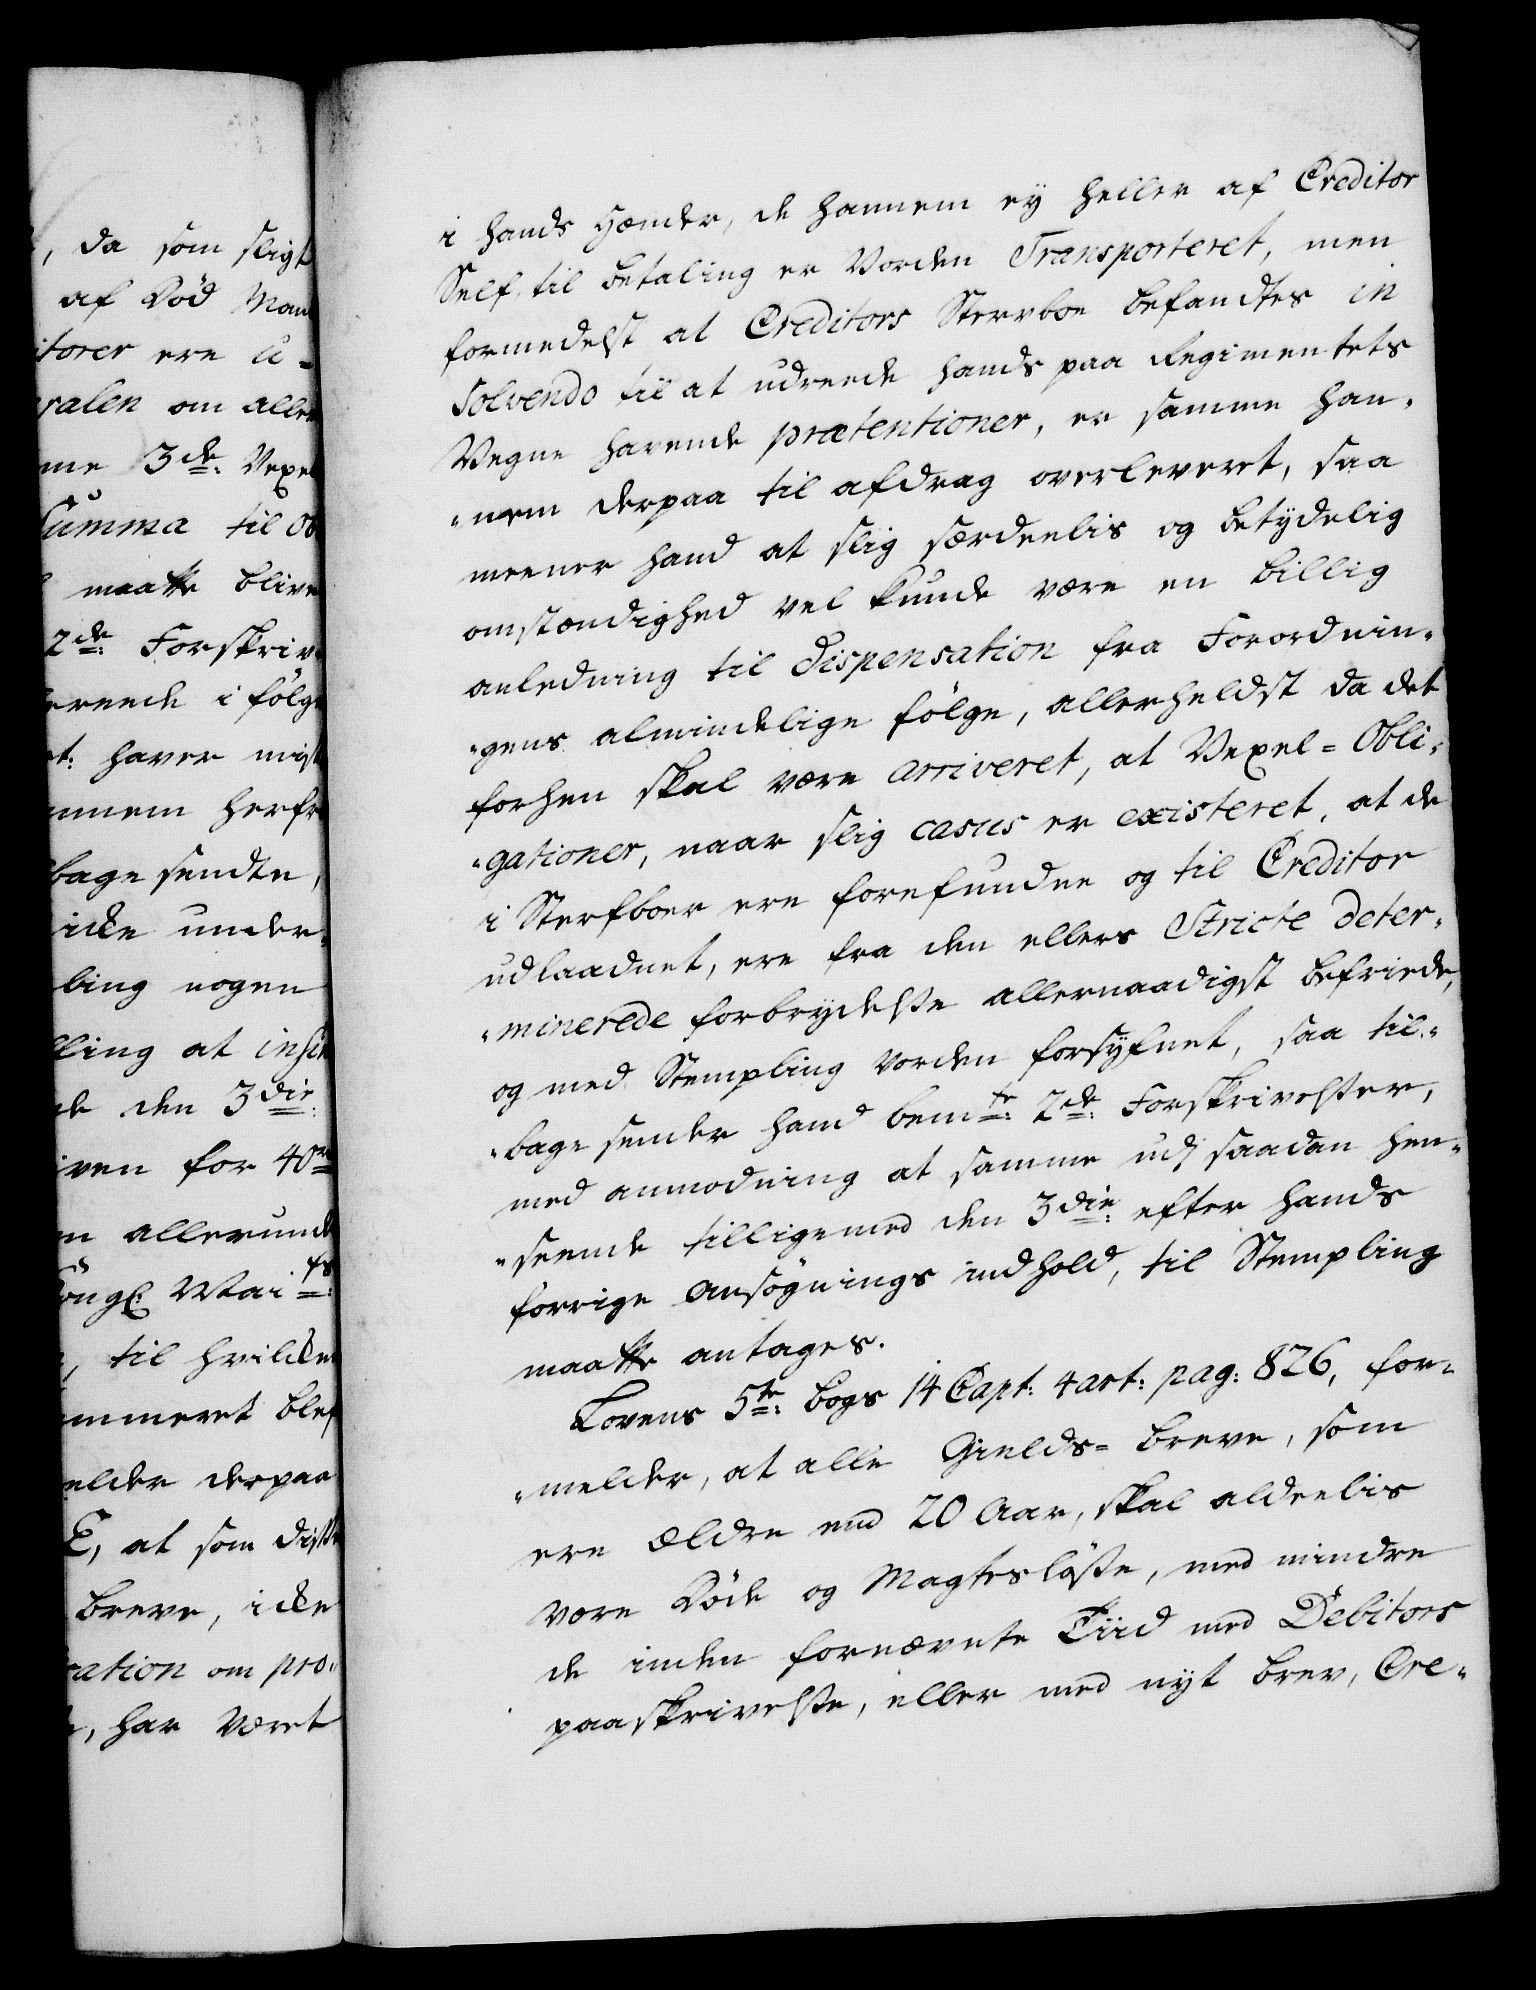 , da som sligt
af Död Man
itorer ere u-
salen om alle
me 3de: Vexel
Summa til Ob
maatte blive
2de: Forskriv
ereede i fölge
et: haver mist
nnem herfr
bage sendte,
icke under-
bling nogen
lling at insin
de den 3die:
iven for 40
n allerund
ongl: Mai ts:
, til hvilcken
mmeret blef
elder derpaa
E, at som diss
breve, icke
ration om pro-
, har været
i hands Hænder, de hannem ey heller af Creditor
Self til betaling er Vorden Transporteret, men
formedelst at Creditors Stervboe befandtes in
Solvendo til at udreede hands paa Regimentets
Vegne havende prætentioner, er samme han-
nem derpaa til afdrag overleveret, saa
meener hand at slig særdeelis og betydelig
omstændighed vel kunde være en billig
anledning til dispensation fra Forordnin-
gens almindelige fölge, allerheldst da det
forhen skal være arriveret, at Vexel=Obli-
gationer, naar slig casus er existeret, at de
i Sterfboer ere forefundne og til Creditor
udlaadnet, ere fra den ellers Stricte deter-
minerede forbrydelsse allernaadigst befriede,
og med Stempling vorden forsyfnet, saa til-
bage sender hand bemte: 2de: Forskrivelsser,
med anmodning at samme udj saadan hen-
seende tilligemed den 3die: efter hands
forrige Ansögnings indhold, til Stempling
maatte antages.
Lovens 5te: bogs 14 Capt: 4 art: pag: 826, for-
melder, at alle Gields= breve, som
ere ældre end 20 Aar, skal aldeelis
være Döde og Magteslösse, med mindre
de inden fornævnte Tiid med Debitors
paaskrivelsse, eller med nyt brev, Cre-